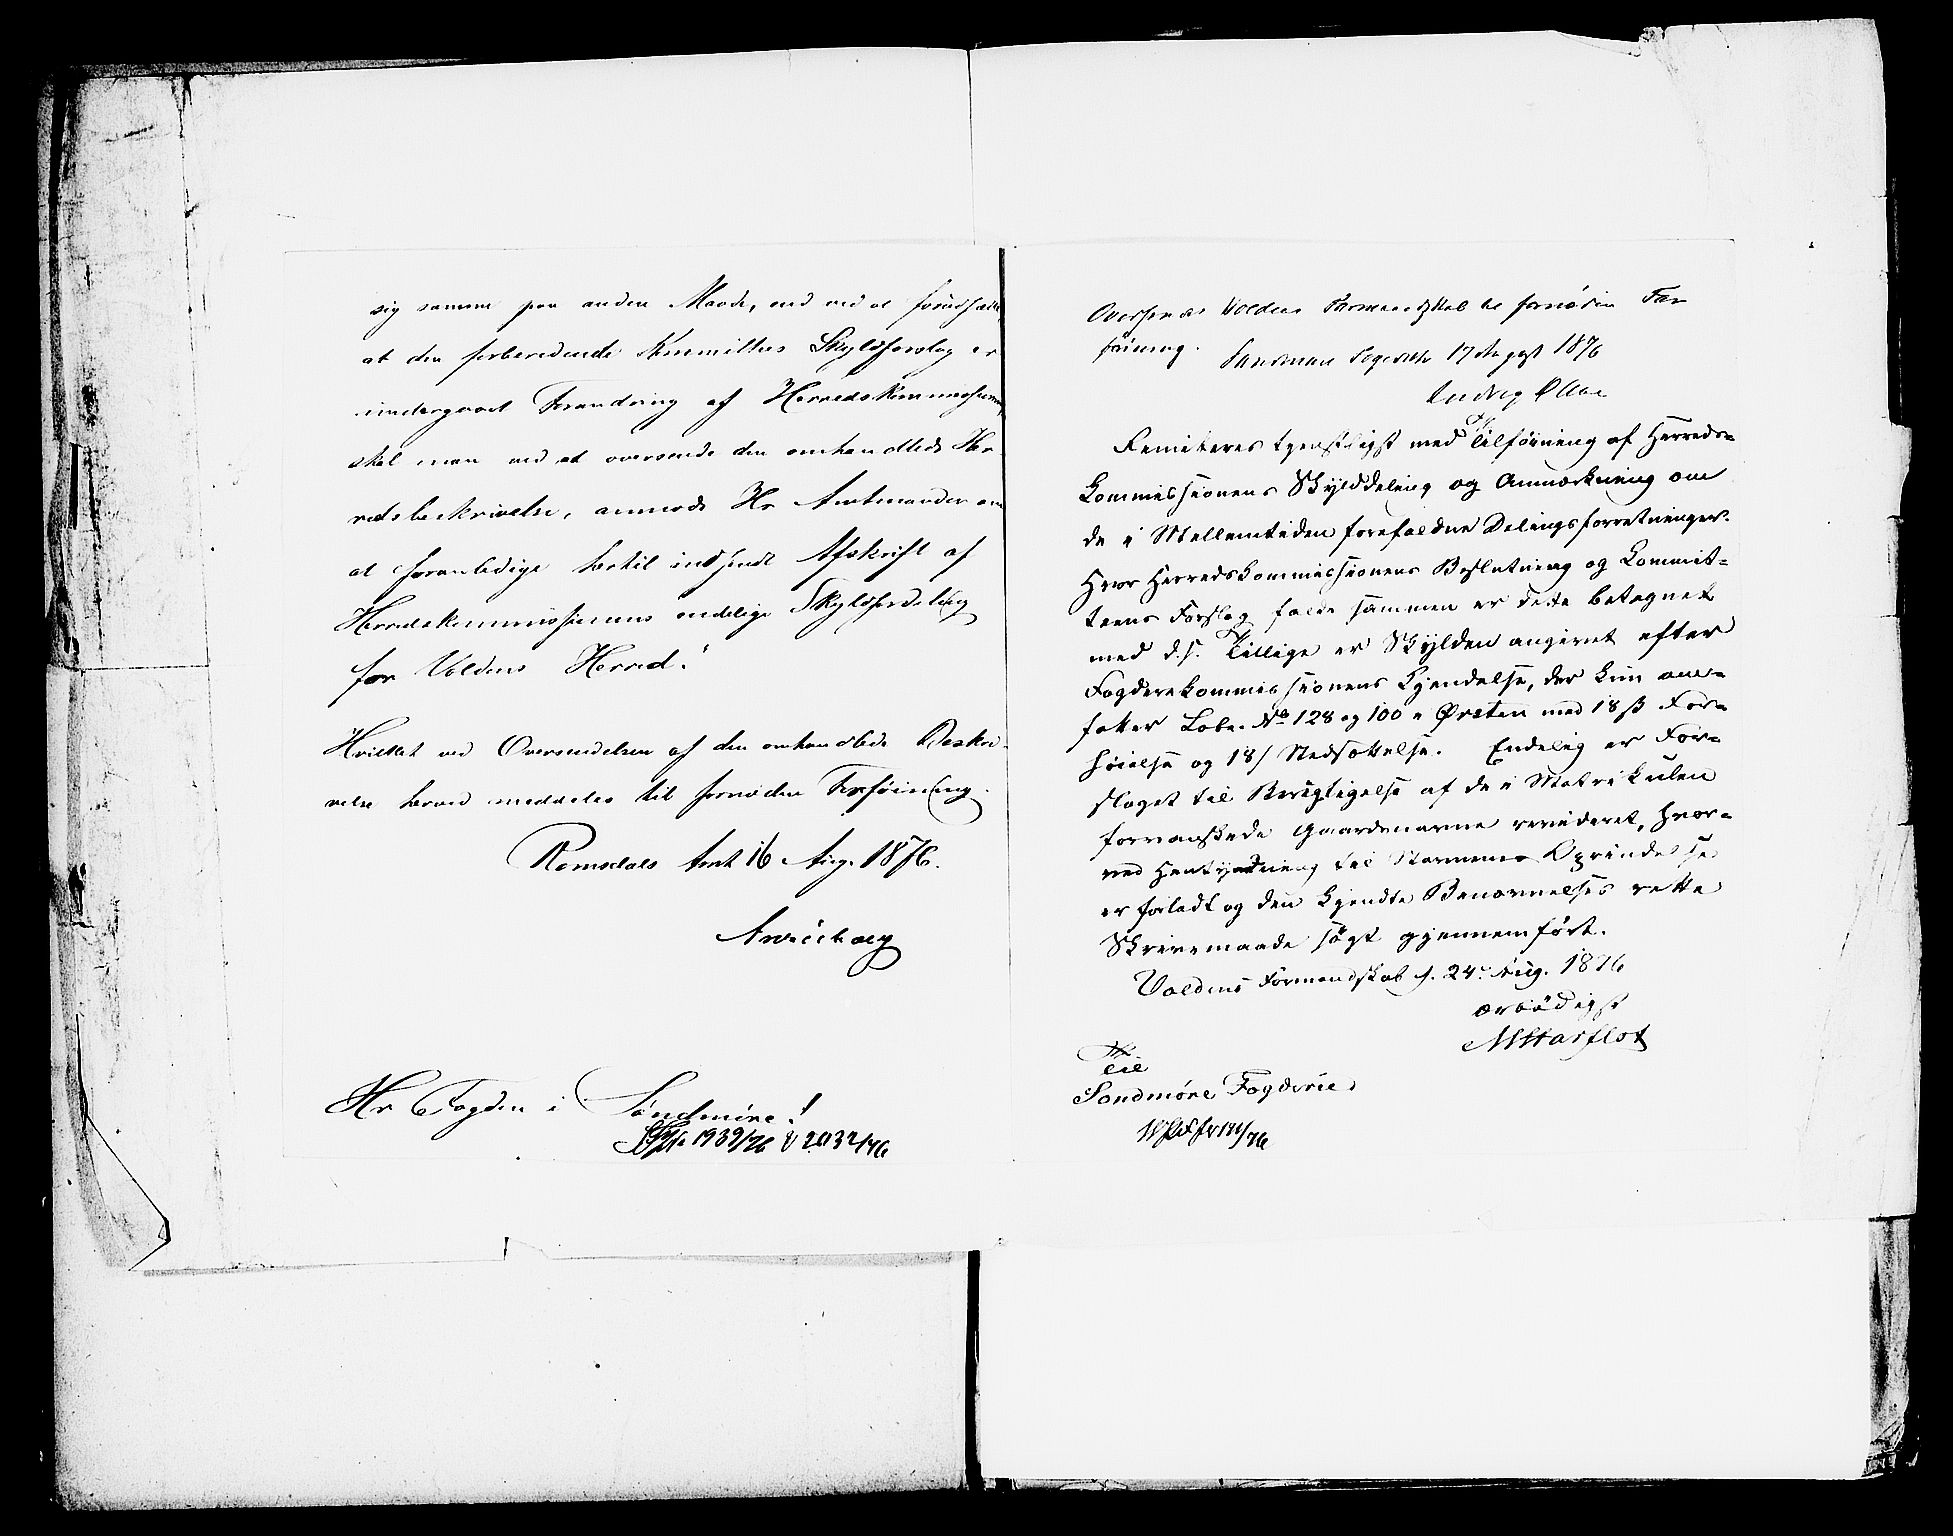 sig samme paa anden Maade, end ved at forudsætte,
at den forberedende Kommittes Skyldforslag er
undergaaet Forandring af Herredskommissionen,
skal man ved at oversende den omhandlede Her-
redsbeskrivelse, anmode Hr Amtmanden om
at foranledige hertil indsendt Afskrift af
Herredskommissionens endelige Skyldfordeling
for Voldens Herred.!
Hvilket ved Oversendelsen af den omhandlede Beskri-
velse herved meddeles til fornøden Forføining.
Romsdals Amt 16 Aug. 1876.
Hr Fogden i Söndmöre!
1939/76 & 2032/76
Oversendes Voldens Formandskab til fornøden For
føining.
Søndmøre Fogderi 17 August 1876
Ludvig
Remitteres tjenstligst med Tilføining af Herreds-
kommissionens Skylddeling og Anmærkning om
de i Mellemtiden forefaldne Delingsforretninger.
Hvor Herredskommissionens Beslutning og Kommit-
teens Forslag falde sammen er dette betegnet
med d.s. Tillige er Skylden angivet efter
Fogderikommissionens Kjendelse, der kun om-
fatter Løbe-No 128 og 100 i Ørsten med 18 ß For-
høielse og 18 ß Nedsættelse. Endelig er For-
slaget til Berigtigelse af de i Matrikulen
forvanskede Gaardnavne revideret, hvor-
ved Hentydning til Navnenes Oprindelse
er forladt og den kjendte Benævnelses rette
Skrivemaade søgt gjennemført.
Voldens Formandskab d. 24. Aug. 1876
ærbödigst
Maasflot
Til
Søndmøre Fogderie